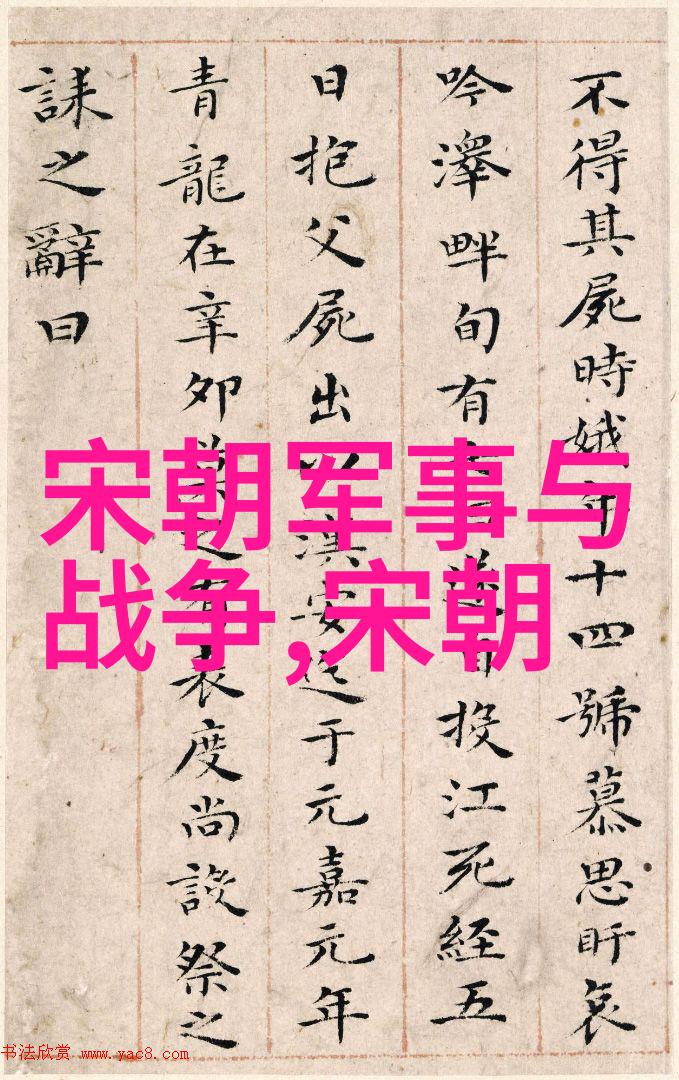 不得其屍時娥年十四號慕思盱哀
吟澤畔旬有遂自投江死經五
日抱父屍出以漢安迄于元嘉元年
青龍在辛卯莫之有表度尚設祭之
誄之辭曰
宋朝军事与
战争,宋朝
书法欣赏 www.yac8.com